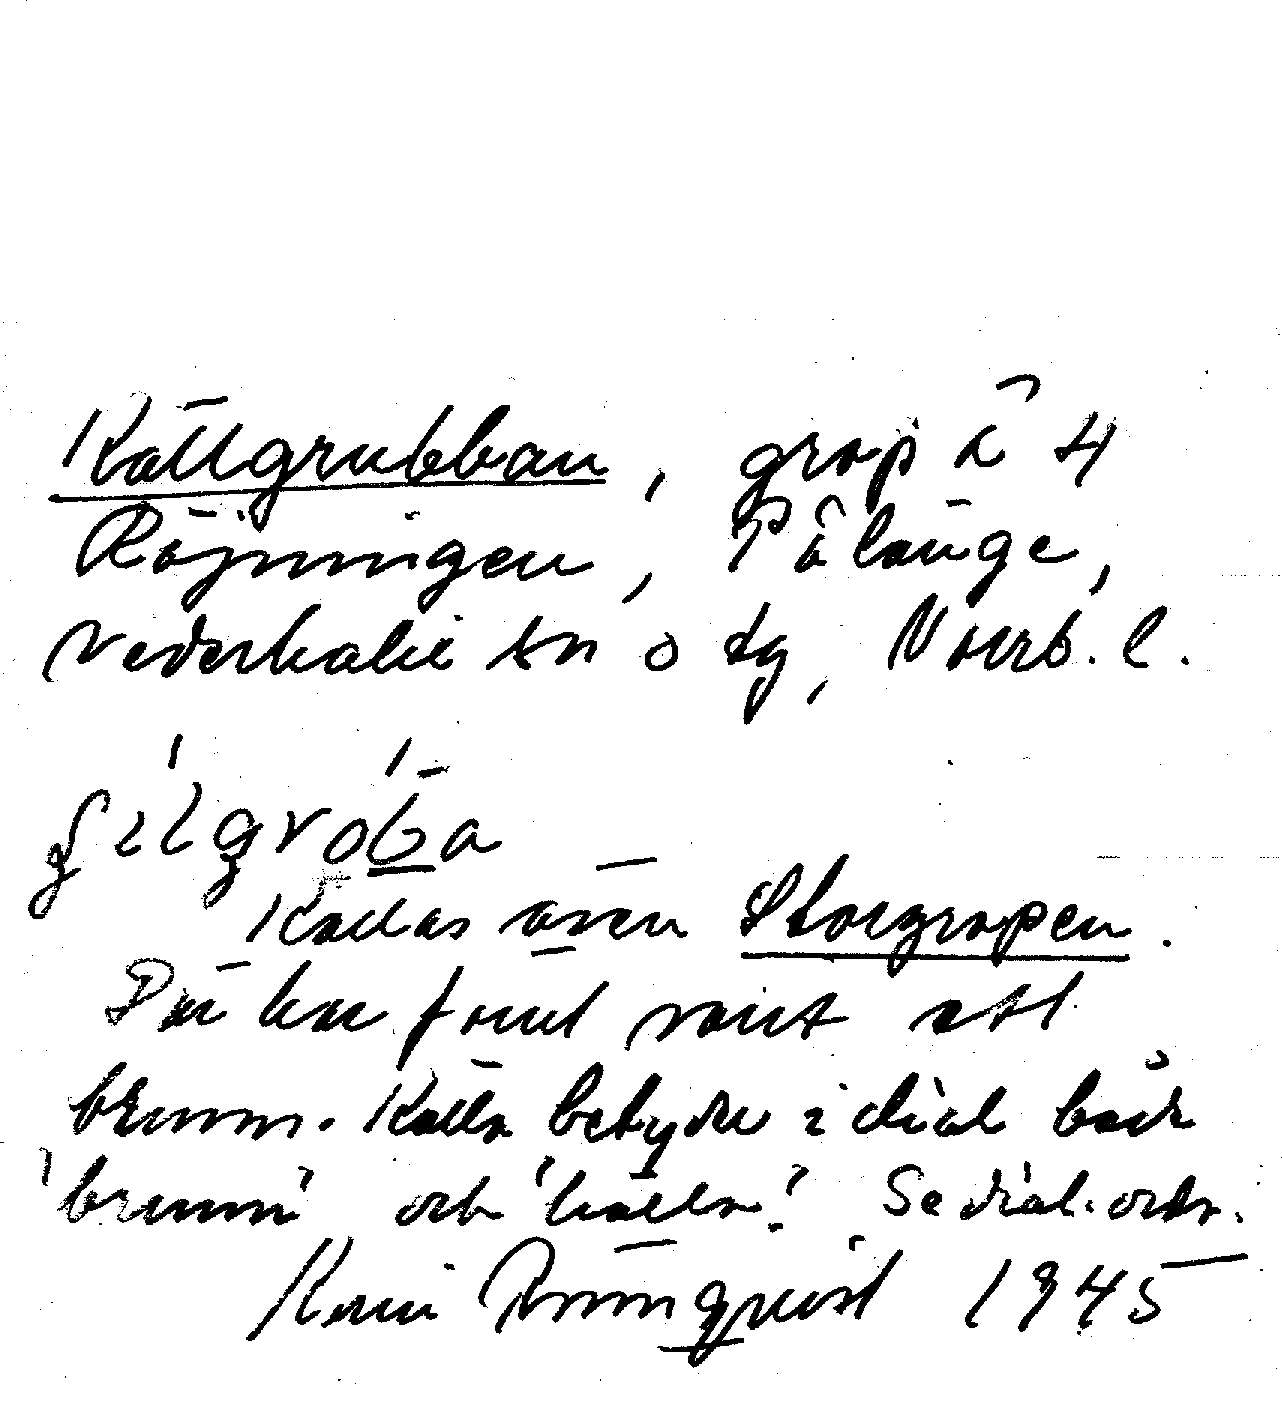 Källgrubban, grop å 4
Röjningen, Pålänge,
Nederkalix sn o tg, Norrb. l.
Kallas även Storgropen.
Där har förut varit ett
brunn. Källa betyder i dial både
'brunn' och 'källa'. Se dial. ordr.
Karin Rönnqvist 1945